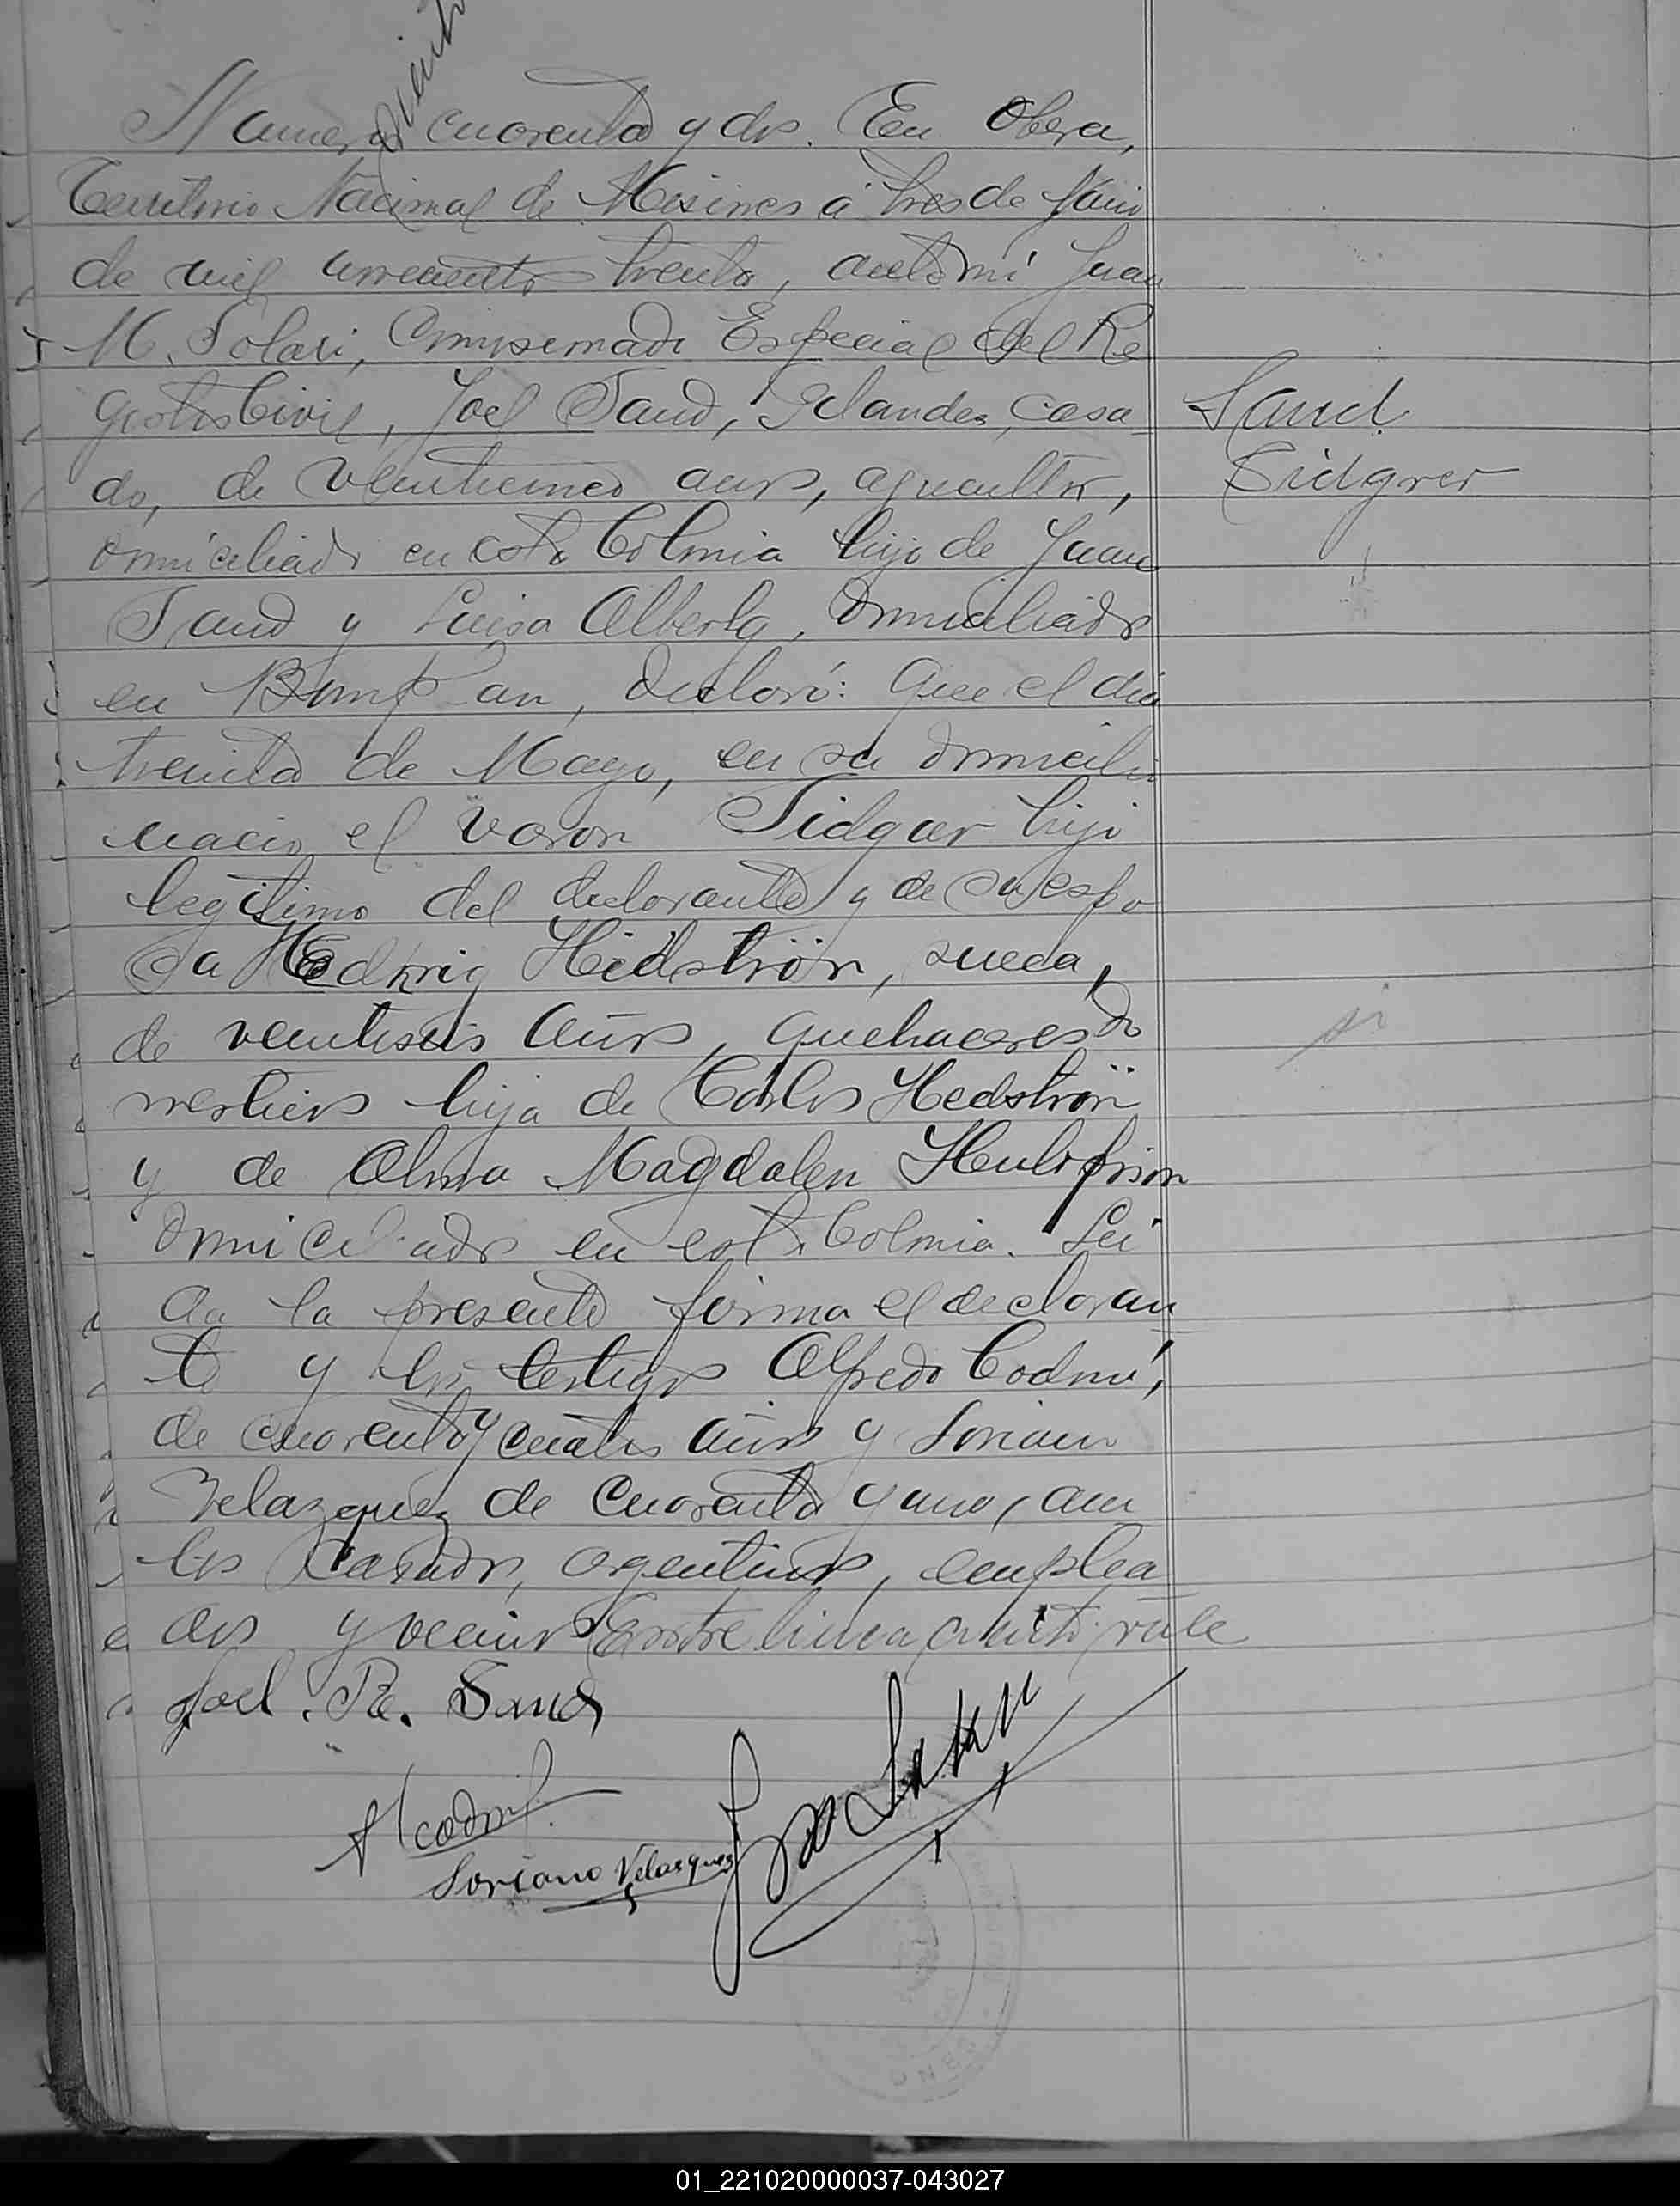 Numero ciento cuarenta y dos. En Obera,
Territorio Nacional de Misiones á tres de Junio
de mil novecientos treinta, ante mi Juan
M. Solari, Comisionado Especial del Re
gistro Civil, Joel Sand, Irlandes, casa
do, de veinticinco años, agricultor,
domiciliado en esta Colonia hijo de Juan
Sand y Luisa Alberta, domiciliado
en Bompland, declaró: Que el dia
treinta de Mayo, en su domicilio
nacio el varon Sidgar hijo
legitimo del declarante y de su espo
sa Hedwig Hedströn, sueca,
de veintiseis años, quehaceres do
mesticos hija de Carlos Hedströn
y de Alma Magdalen
domiciliado en esta Colonia. Lei
da la presente firma el declaran
te y los testigos Alfredo Codmi,
de cuarenta y cuatro años y Soriano
Velazquez de cuarenta y uno, am
bos casados, argentinos, emplea
dos y vecinos Entre linea ciento vale
Joel. R. Sand
A Codmi
Soriano Velazquez
Sand
Sidgrer
01_221020000037-043027